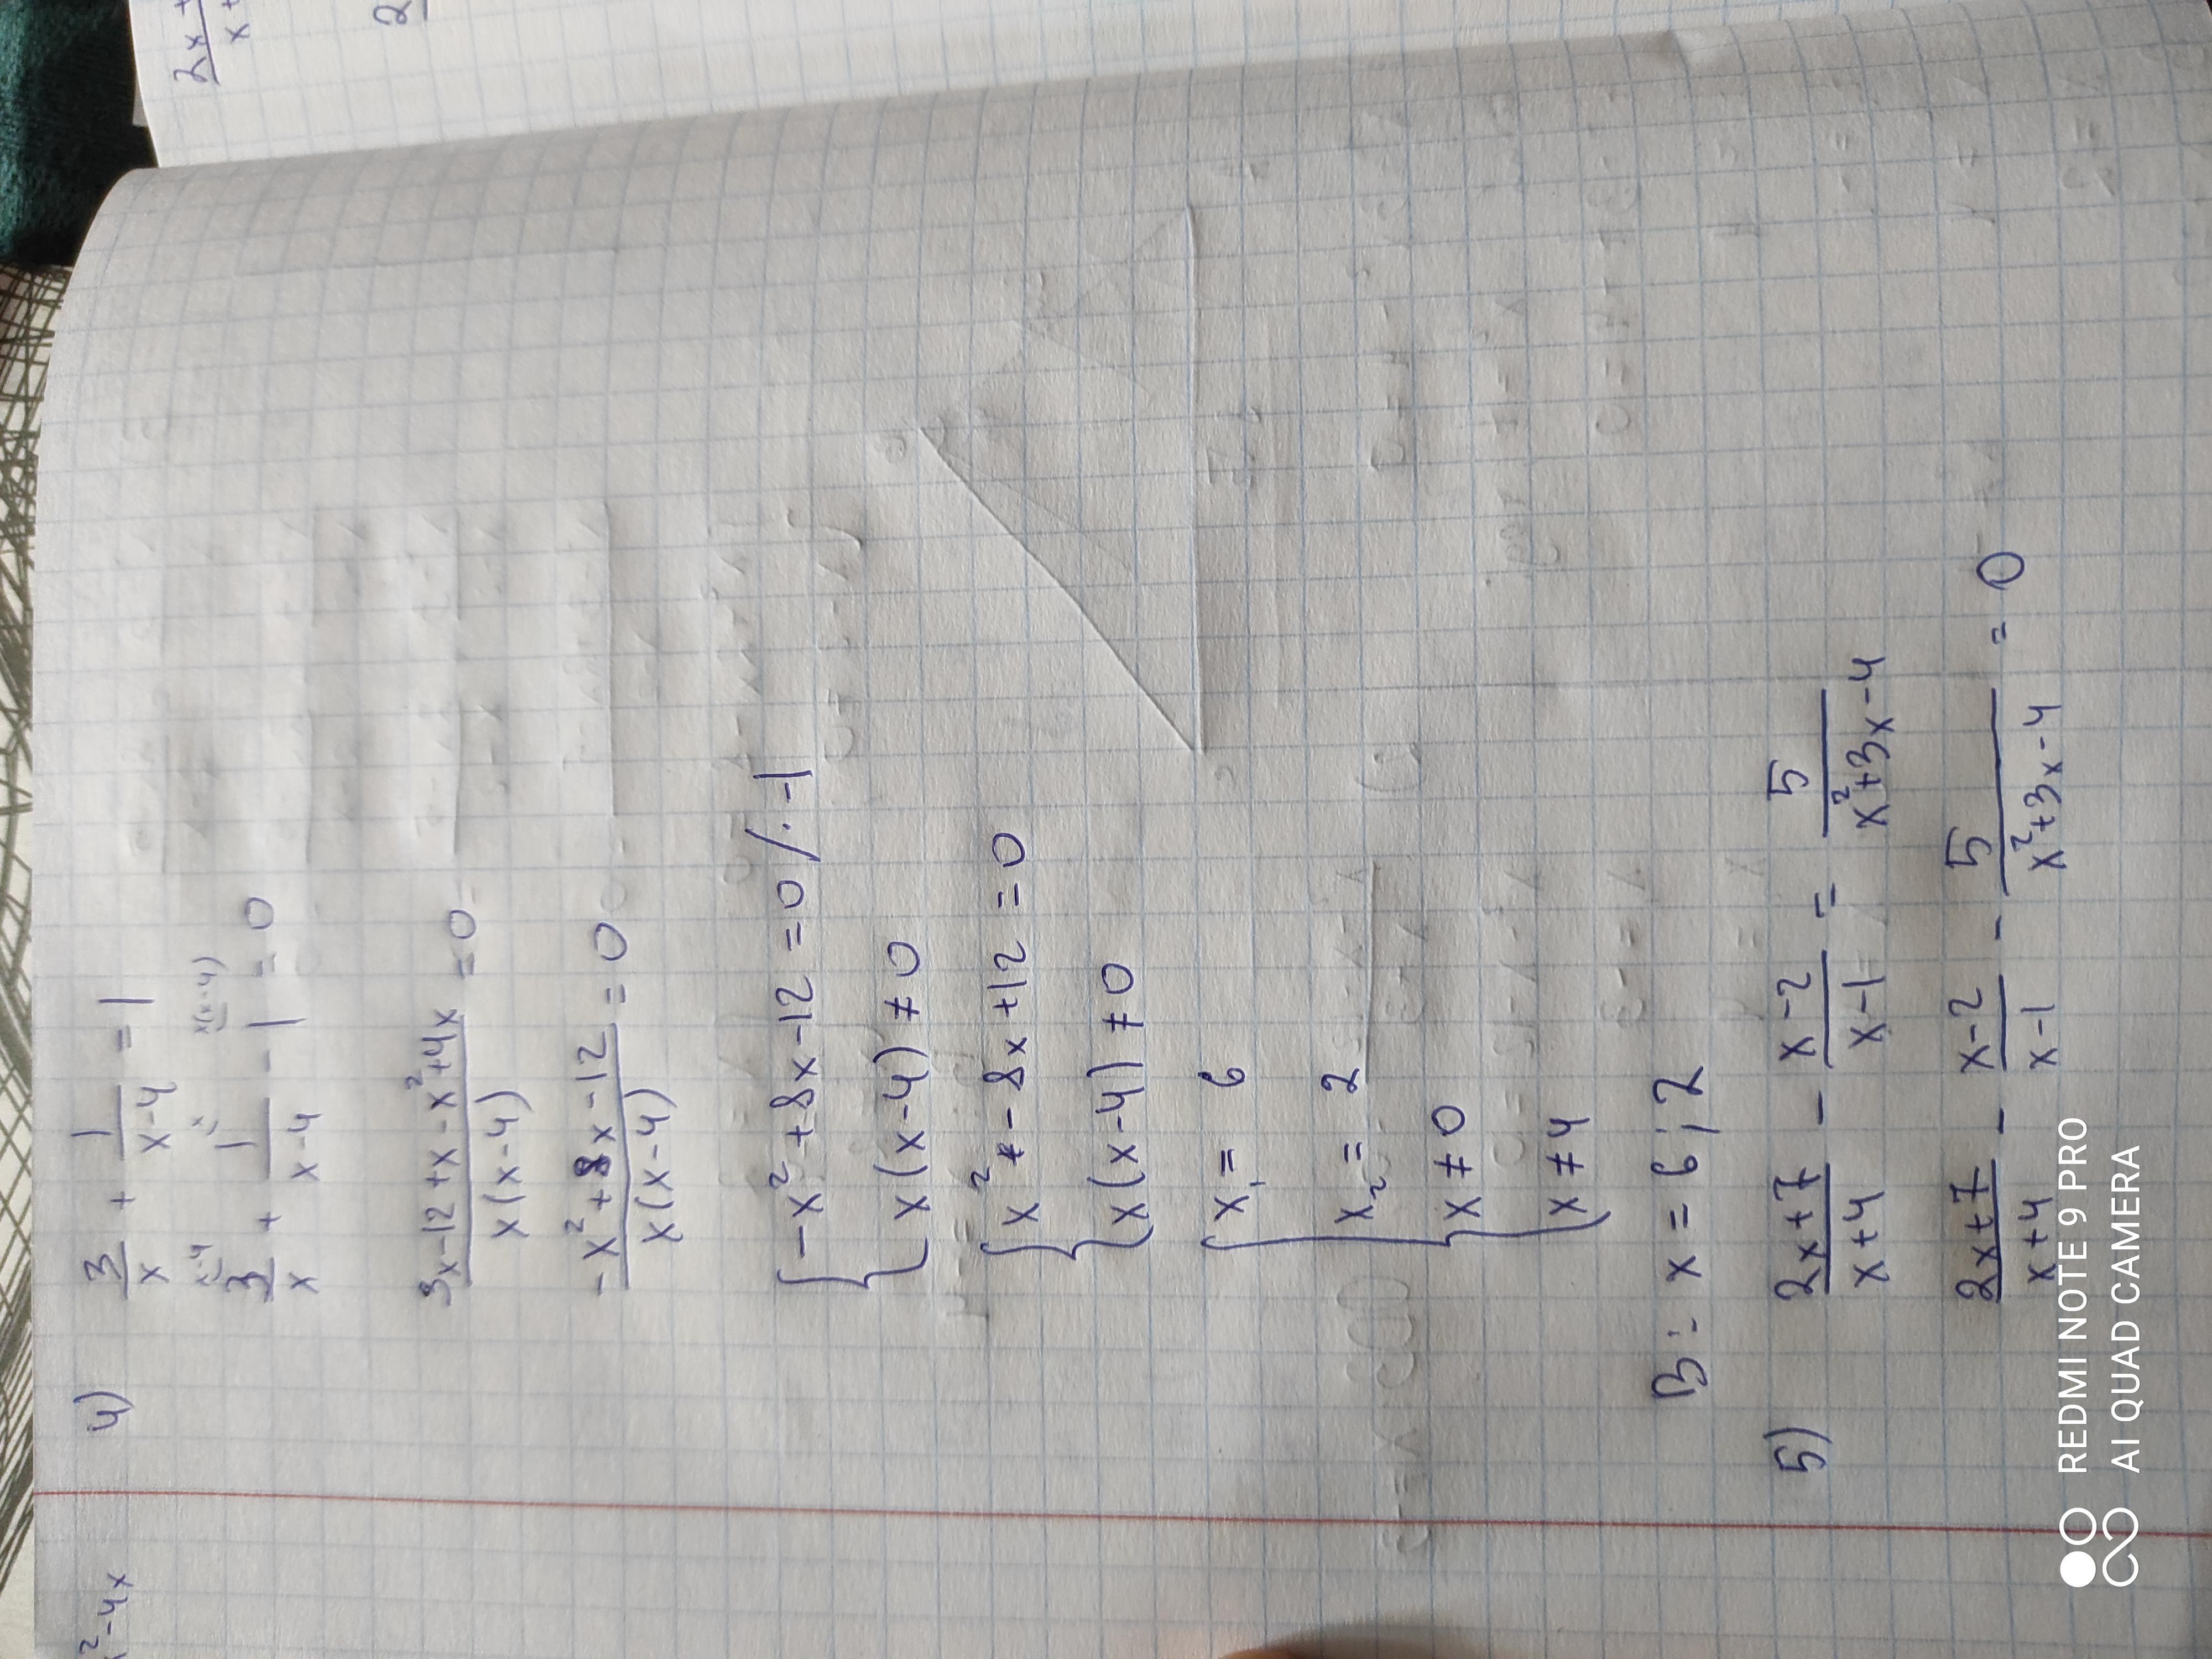 2x+
x+
2
x²-4x
4) 3/x + 1/(x-4) = 1
x-4 x x(x-4)
3/x + 1/(x-4) - 1 = 0
(3x-12+x-x²+4x)/(x(x-4)) = 0
(-x²+8x-12)/(x(x-4)) = 0
{ -x²+8x-12=0 /·-1
x(x-4)≠0
{ x²-8x+12=0
x(x-4)≠0
{ x₁= 6
x₂= 2
x≠0
x≠4
В: x=6;2
5) (2x+7)/(x+4) - (x-2)/(x-1) = 5/(x²+3x-4)
(2x+7)/(x+4) - (x-2)/(x-1) - 5/(x²+3x-4) = 0
REDMI NOTE 9 PRO
AI QUAD CAMERA